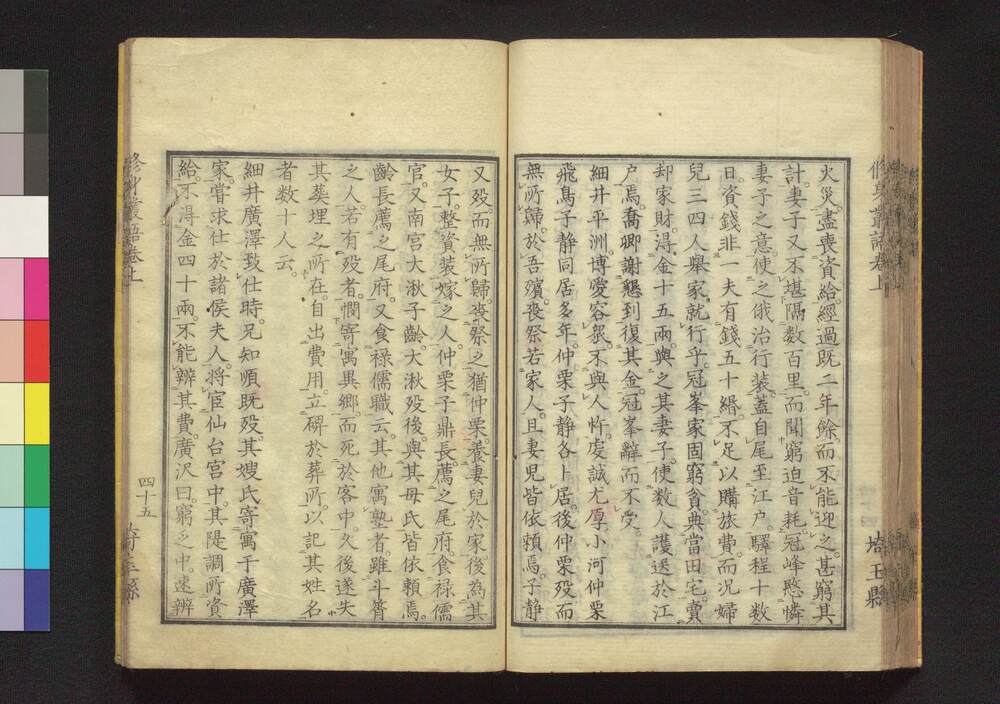 火災。盡喪資給。經過既二年餘而不能迎之。甚窮其
計。妻子又不堪隔數百里。而聞窮迫音耗。冠峰愍憐
妻子之意。使之俄治行裝。蓋自尾至江戸。驛程十數
日。資錢非一。夫有錢五十緡。不足以購旅費。而况婦
兒三四人舉家就行乎。冠峯家固窮貧。典當田宅。賣
却家財。得金十五兩。與之其妻子。使数人護送於江
户焉。喬卿謝懇到復其金。冠峯辭而不受。
細井平洲。博愛容衆。不與人忤。虔誠尤厚。小河仲栗
飛鳥子静同居多年。仲栗子静各卜居。後仲栗歿而
無所歸。於吾殯。喪祭若家人。且妻兒皆依頼焉。子静
又歿。而無所歸。喪祭之猶仲栗。養妻兒於家。後為其
女子。整資装。嫁之人。仲栗子鼎長。薦之尾府。食禄儒
官。又南宮大湫子齡。大湫歿後。與其母氏皆依頼焉。
齡長薦之尾府。又食禄儒職云。其他寓塾者。雖斗筲
之人。若有歿者。憫寄寓異郷。而死於客中。久後遂失
其葬埋之所在。自出費用。立碑於葬所。以記其姓名
者数十人云。
細井廣澤致仕時。兄知順既歿。其嫂氏寄寓于廣澤
家。嘗求仕於諸侯夫人。將宦仙台宮中。其隄調所資
給。不得金四十兩。不能辨其費。廣沢曰。窮乏中。速辨
修身叢語卷上
埼玉縣
四十五